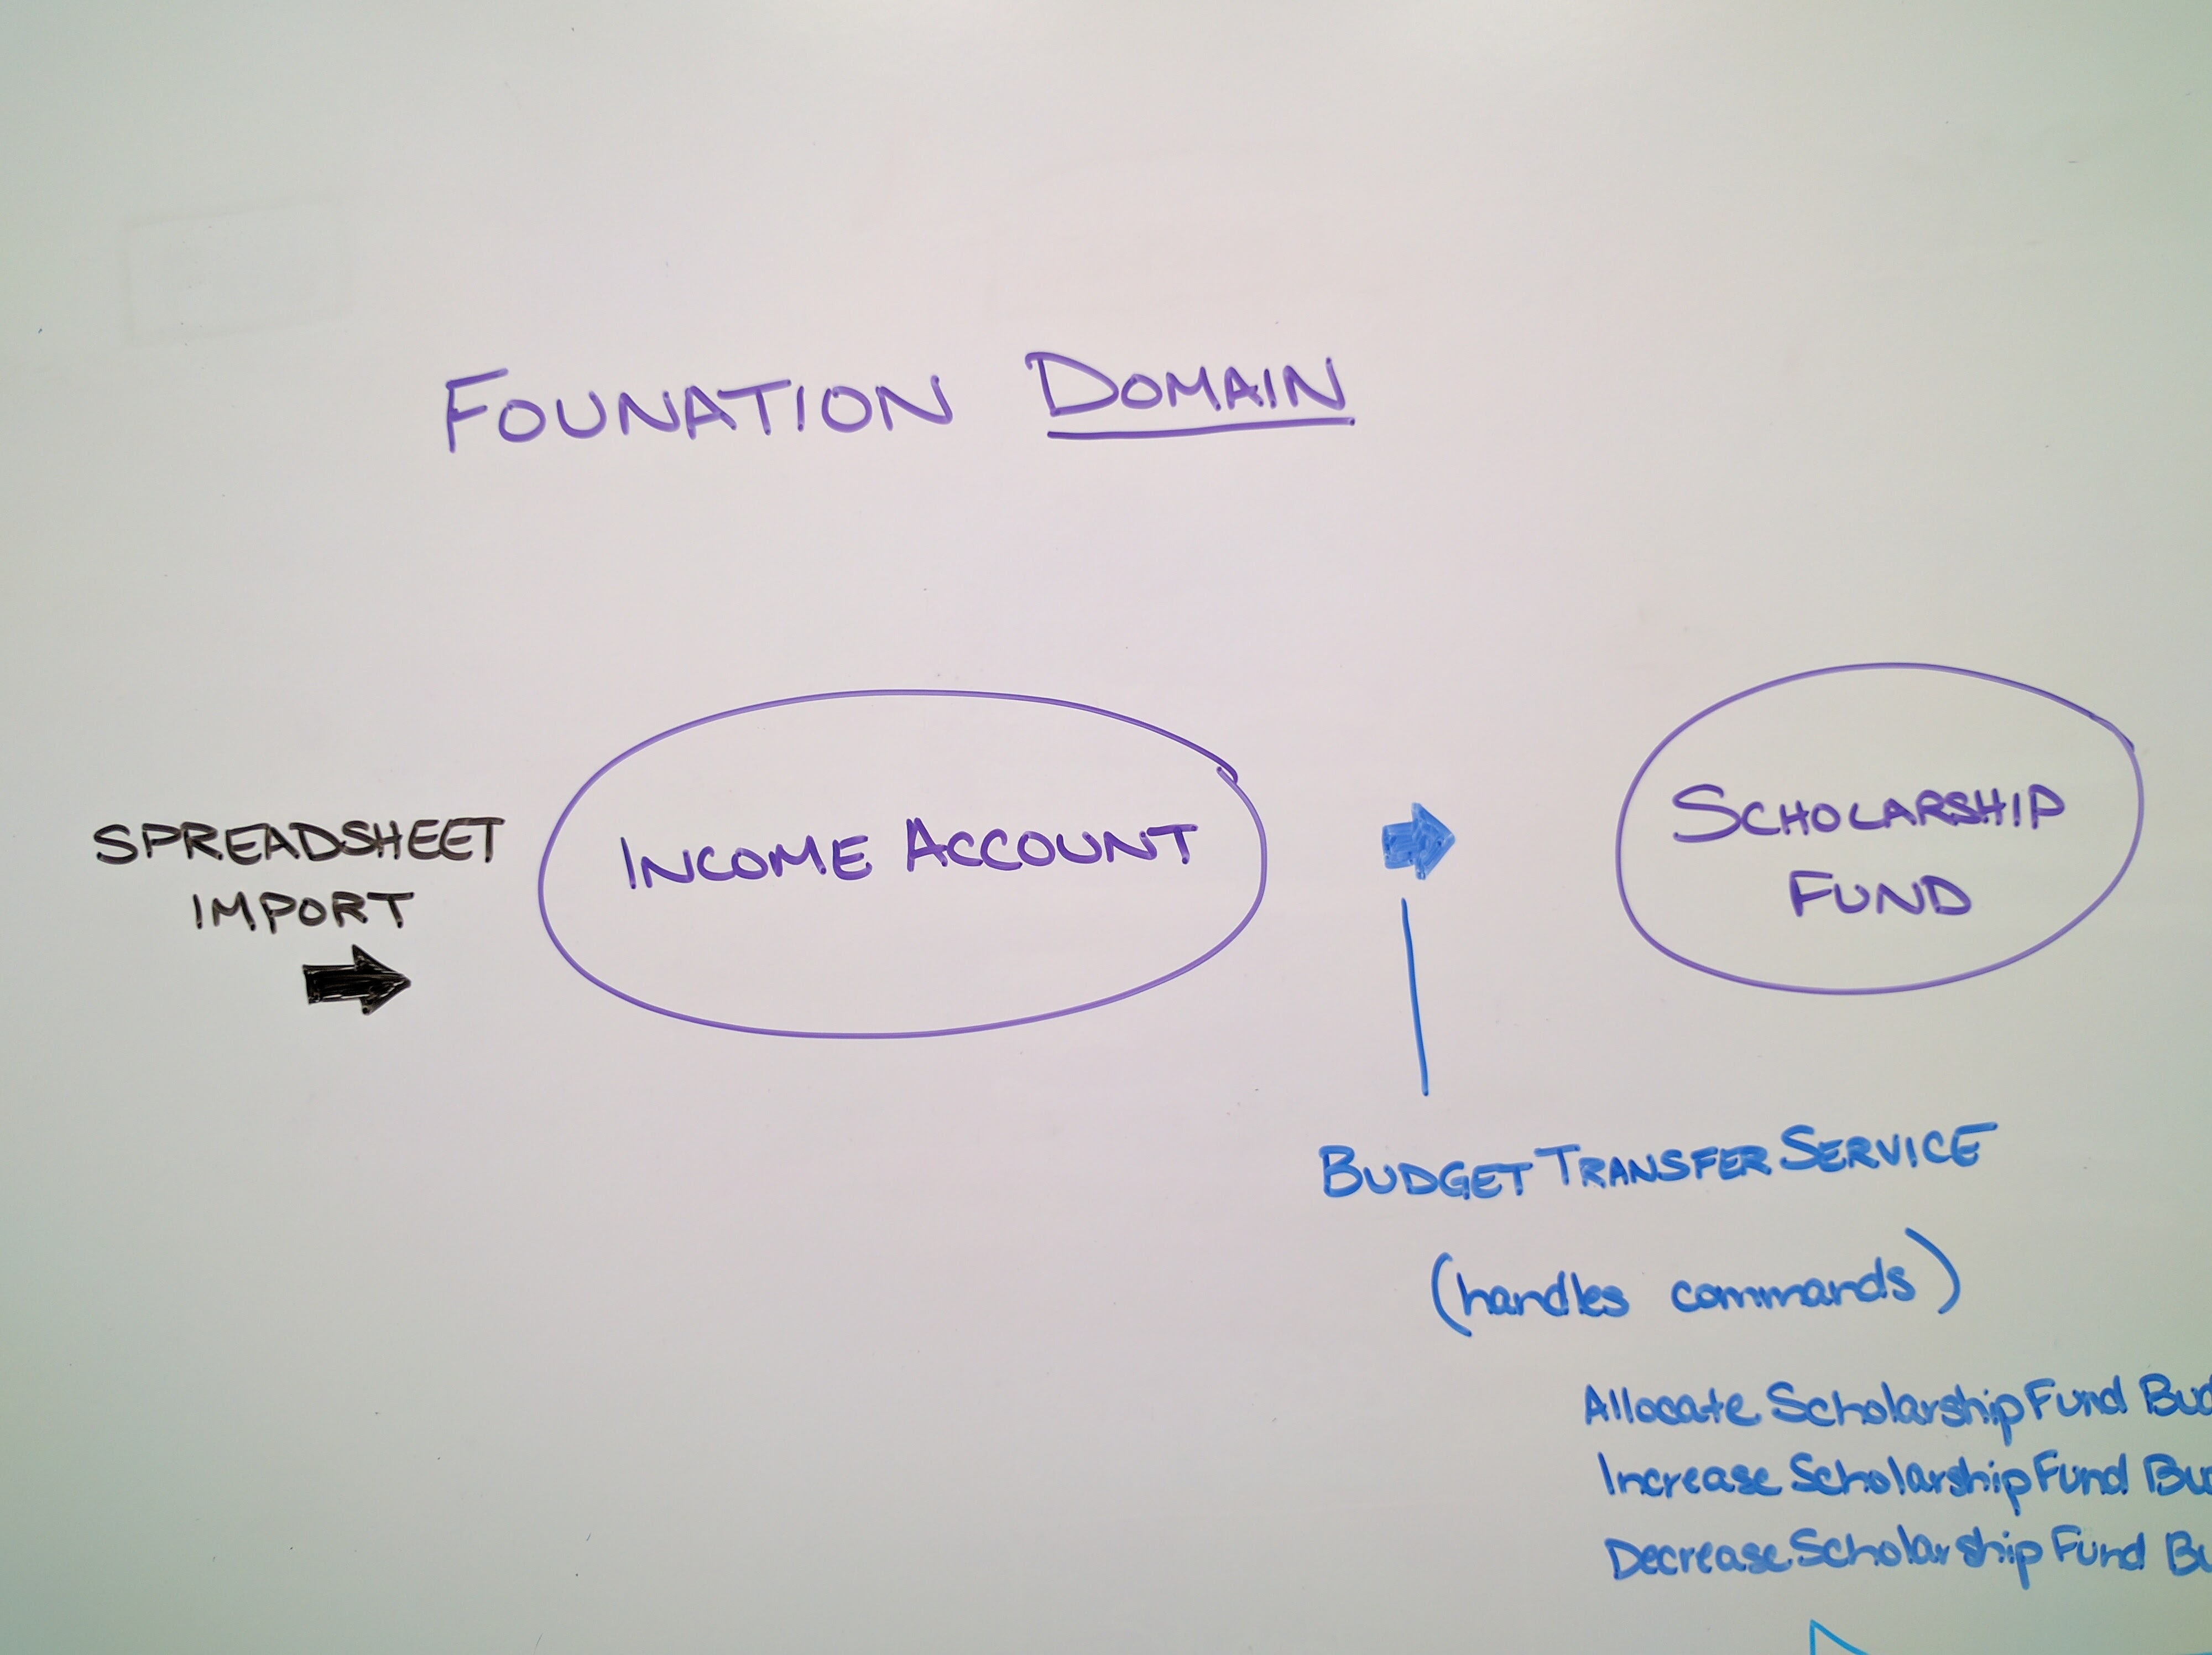 FOUNATION DOMAIN
SPREADSHEET
IMPORT
INCOME ACCOUNT
SCHOLARSHIP
FUND
BUDGETTRANSFERSERVICE
(handles commands)
AllocateScholarshipFund
IncreaseScholarshipFund
DecreaseScholarshipFund